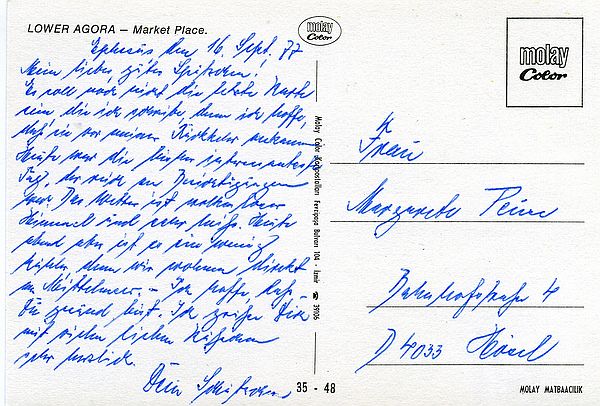 LOWER AGORA – Market Place.
molay
Color
Ephesus den 16. Sept. 77
Mein liebes, gutes Spätzchen!
Es soll noch nicht die letzte Karte
sein die ich schreibe, denn ich hoffe,
daß sie vor meiner Rückkehr ankommt
Heute war die
Tag, der reich an Besichtigungen
war. Das Wetter ist wolkenloser
Himmel und sehr heiß. Heute
abend aber ist es ein wenig
kühler, denn wir wohnen direkt
am Mittelmeer. – Ich hoffe, daß
Du gesund bist. Ich grüße Dich
mit vielen lieben Küßchen
sehr herzlich.
Dein
Molay Color Kartpostalları Fevzipaşa Bulvarı 104 - İzmir ☎ 39106
molay
Color
Frau
Margarete Peine
Bahnhofstraße 4
D 4033 Hösel
35 - 48
MOLAY MATBAACILIK